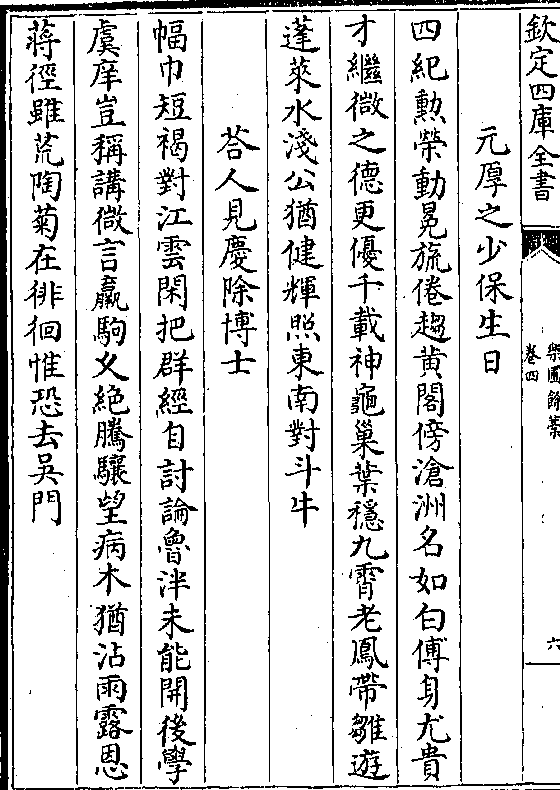 欽定四庫全書
樂圃餘藁
卷四
六
元厚之少保生日
四紀勲榮動冕旒倦趨黄閣傍滄洲名如白傅身尤貴
才繼微之德更優千載神龜巢葉穩九霄老鳳帶雛遊
蓬萊水淺公猶健輝照東南對斗牛
荅人見慶除博士
幅巾短褐對江雲閑把群經自討論魯泮未能開後學
虞庠豈稱講微言羸駒久絶騰驤望病木猶沾雨露恩
蔣徑雖荒陶菊在徘徊惟恐去吳門